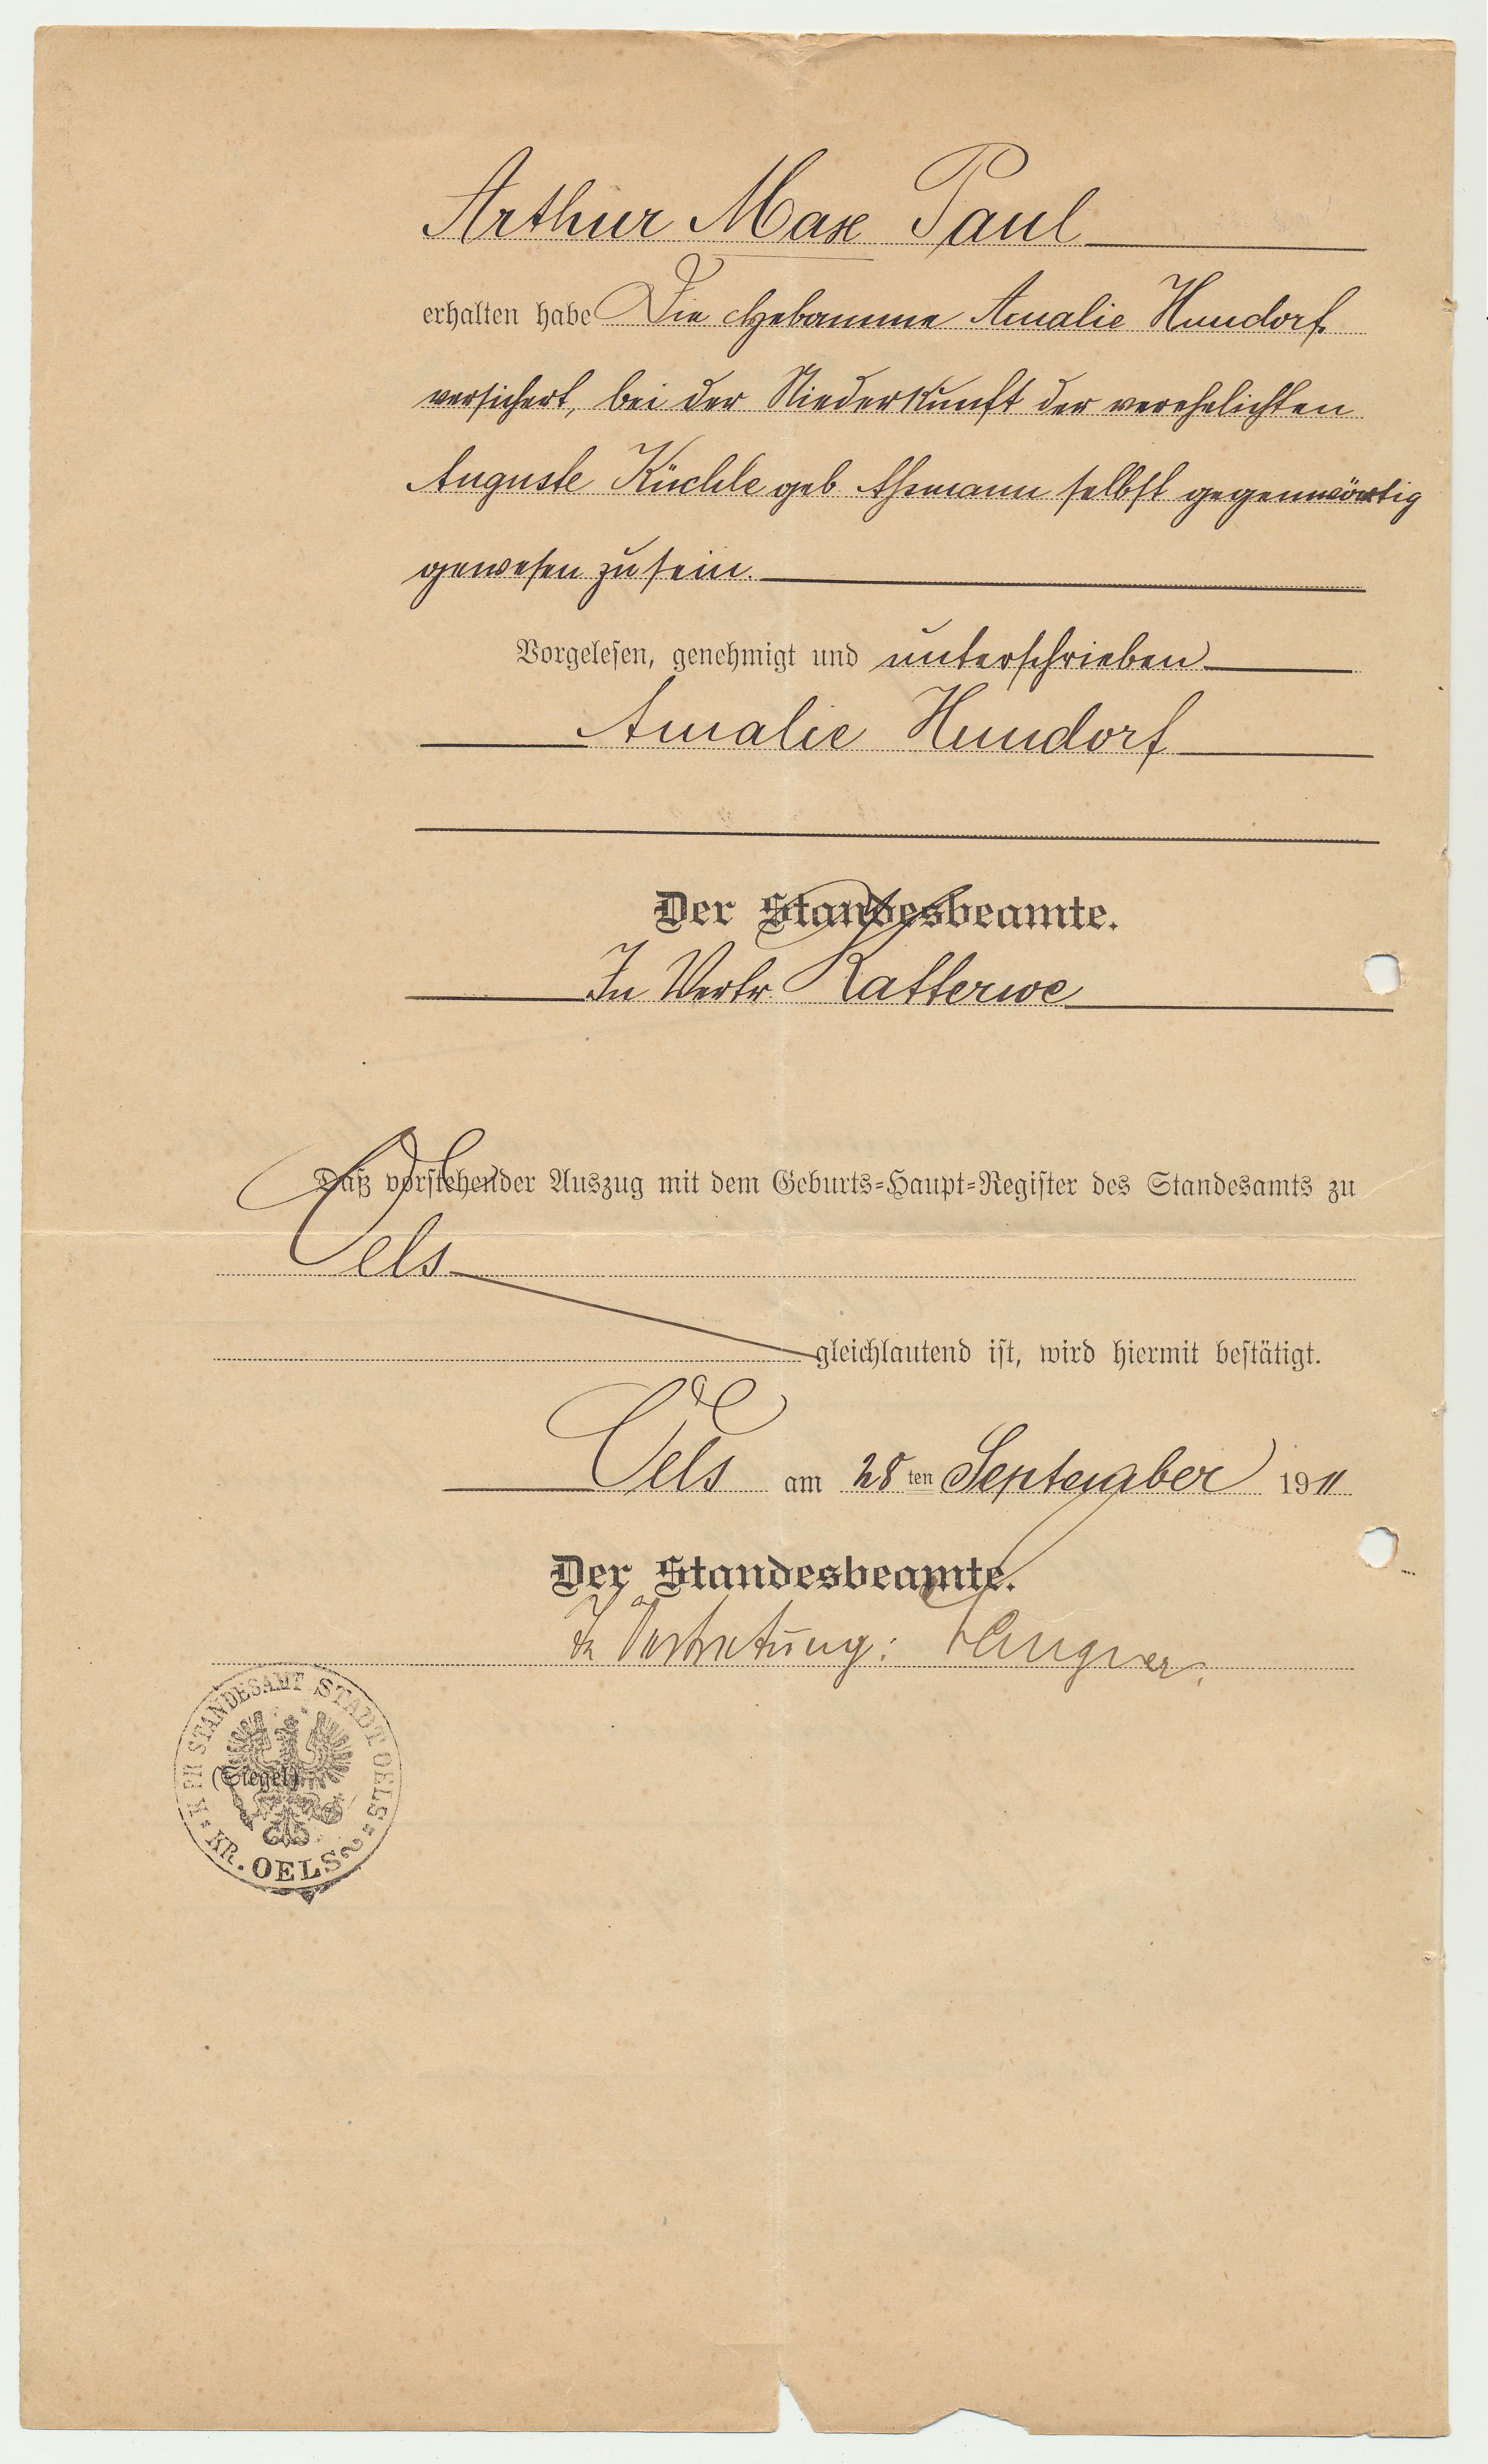 Arthur Max Paul
erhalten habe Die Hebamme Amalie Hundorf
versichert, bei der Niederkunft der verehelichten
Auguste Küchle geb Aßmann selbst gegenwärtig
gewesen zu sein.
Vorgelesen, genehmigt und unterschrieben
Amalie Hundorf
Der Standesbeamte.
In Vertr. Katterwe
Daß vorstehender Auszug mit dem Geburts-Haupt-Register des Standesamts zu
Oels
gleichlautend ist, wird hiermit bestätigt.
Oels am 28 ten September 1911
Der Standesbeamte.
In Vertretung:
(Siegel)
K. PR. STANDESAMT STADT OELS
KR. OELS